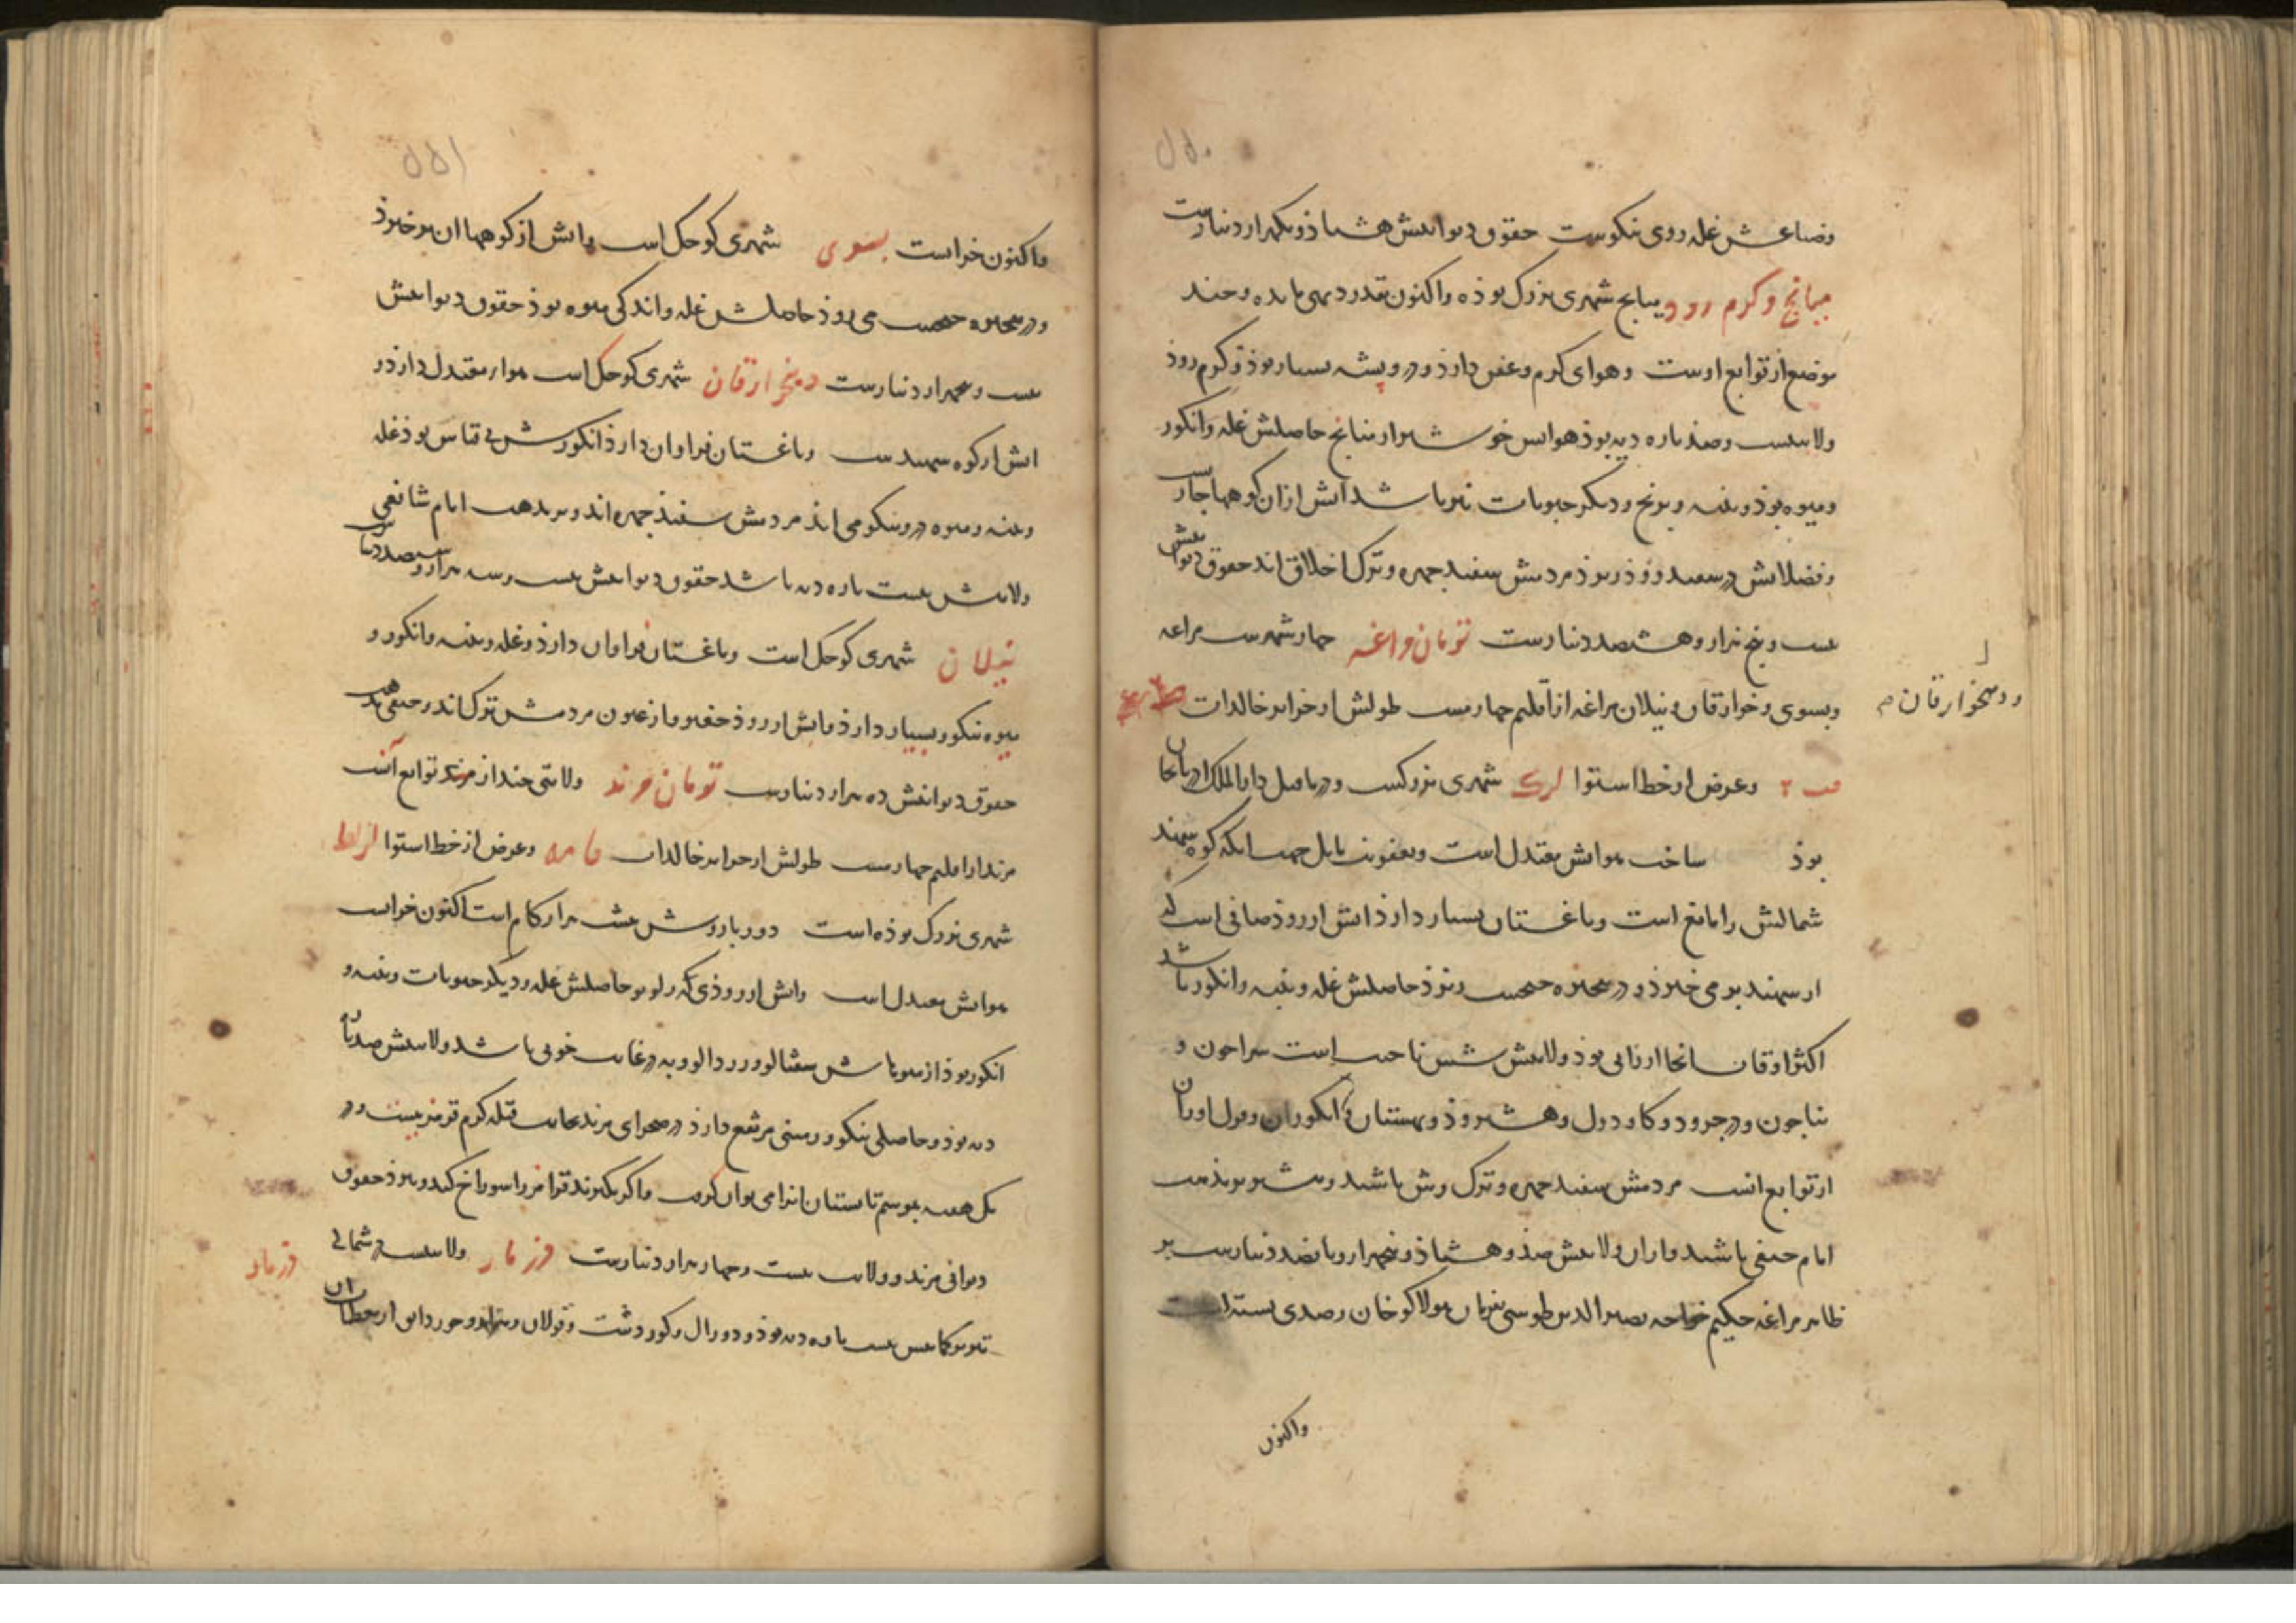 وضیاعش غله روی نیکوست حقوق دیوانیش هشتاد و یکهزار دینارست
میانج و گرم رود میانج شهری بزرگ بوده و اکنون بقدر دیهی مانده و چند
موضع از توابع اوست و هوای گرم و عفن دارد و درو پشه بسیار بود و گرم رود
ولایتیست و صد پاره دیه بود هوایش خوشتر از میانج حاصلش غله و انگور
و میوه بود و پنبه و برنج و دیگر حبوبات نیز باشد آبش از آن کوهها جاریست
و فضلابش در سفیدرود ریزد مردمش سفید چهره و ترک اخلاق اند حقوق دیوانیش
بیست و پنج هزار و هشتصد دینارست تومان مراغه چهار شهرست مراغه
و بسوی و خوارقان و نیلان مراغه از اقلیم چهارمست طولش از جزایر خالدات
و دهخوارقان
وعرض از خط استوا شهری بزرگست و در ماقبل دارالملک آذربایجان
بود ساخت هوایش معتدل است و بعفونت مایل جهت آنکه کوه سهند
شمالش را مانع است و باغستان بسیار دارد آبش از رود صافی است که
از سهند بر می خیزد و در بحیره چیچست ریزد حاصلش غله و پنبه و انگور باشد
اکثر اوقات آنجا ارزانی بود ولایتش شش ناحیت است سراجون و
نیاجون و درجرود و گاودول و هشترود و بهستان و انگوران و
از توابع آنست مردمش سفید چهره و ترک وش باشند و بیشتر بر مذهب
امام حنفی باشند و ازان ولایتش صد و هشتاد و پنجهزار و پانصد دینارست بر
ظاهر مراغه حکیم خواجه نصیر الدین طوسی بفرمان هولاکو خان رصدی بسته است
واکنون
واکنون خرابست بسوی شهری کوچک است و آبش از کوهها آن بر خیزد
و در بحیره چیچست می ریزد حاصلش غله و اندکی میوه بود حقوق دیوانیش
بیست و پنجهزار دینارست دهخوارقان شهری کوچک است هواء معتدل دارد و
آبش از کوه سهندست و باغستان فراوان دارد انگورش بی قیاس بود غله
و پنبه و میوه درو نیکو می آید مردمش سفید چهره اند و بر مذهب امام شافعی
ولایتش هشت پاره دیه باشد حقوق دیوانیش بیست و سه هزار و ششصد دینارست
نیلان شهری کوچک است و باغستان فراوان دارد و غله و پنبه و انگور و
میوه نیکو و بسیار دارد و آبش از رود جغتو و از عیون مردمش ترک اند و حنفی مذهب
حقوق دیوانیش ده هزار دینارست تومان مرند ولایتی چند از مرند توابع آنست
مرند از اقلیم چهارمست طولش از جزایر خالدات وعرض از خط استوا
شهری بزرگ بوده است دور باروش هشت هزار گام است اکنون خرابست
هوایش معتدل است و آبش از رودی که زلویر حاصلش غله و دیگر حبوبات و پنبه و
انگور بود از میوهاش شفتالو و زردآلو و به در غایت خوبی باشد ولایتش صد پاره
دیه بود و حاصلی نیکو و زمینی مرتفع دارد در صحرای مرند بجانب قبله کرم قرمز هست و در
یک هفته بموسم تابستان آنرا می توان گرفت و اگر نگیرند قرمز را سوراخ کند و بپرد حقوق
دیوانی مرند و ولایت بیست و چهار هزار دینارست دزمار ولایتیست در شمالی
دزمار
تبریز کمابیش بیست پاره دیه بود و دوزال و کوردشت و قولان و هراز و خوردانق از معظمات آن
۵۵۰
۵۵۱